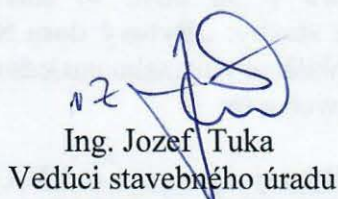 Ing. Jozef Tuka
Vedúci stavebného úradu